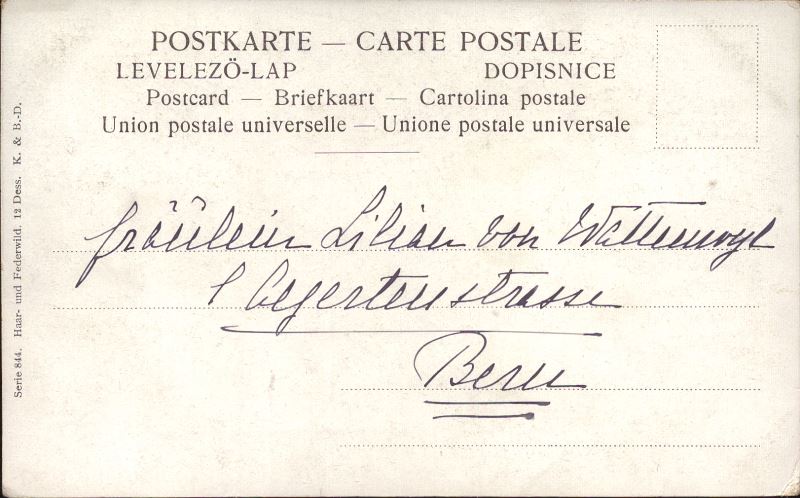 POSTKARTE — CARTE POSTALE
LEVELEZÖ-LAP DOPISNICE
Postcard — Briefkaart — Cartolina postale
Union postale universelle — Unione postale universale
Fräulein Lilian von Wattenwyl
1 Aegertenstrasse
Bern
Serie 844. Haar- und Federwild. 12 Dess. K. & B.-D.